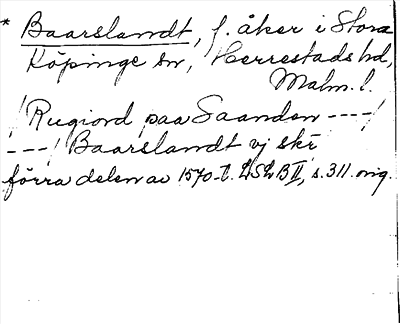 * Baarslandt, f. åker i Stora
Köpinge sn, Herrestads hd,
Malm. l.
/Rugiord paa Saanden ----/
---/ Baarslandt vj skr̄
förra delen av 1570-t. LSLB II, s. 311. orig.